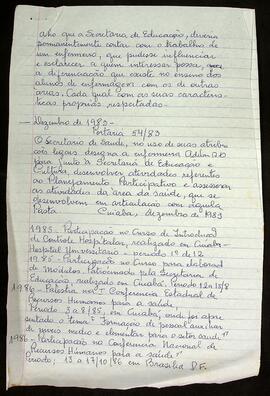 Acho que a Secretaria de Educação, deveria
permanentemente contar com o trabalho de
um enfermeiro, que pudesse influenciar
e esclarecer a quem interessar possa,
a diferenciação que existe no ensino dos
alunos de enfermagem com os de outras
áreas. Cada qual com as suas caracterís
ticas próprias respeitadas.
Dezembro de 1983 -
Portaria 54/83
O Secretario de Saude, no uso de suas atribui
ções legais designa a enfermeira
para junto à Secretaria de Educação e
Cultura, desenvolver atividades referentes
ao Planejamento Participativo e assessorar
as atividades da área da Saúde, que se
desenvolvem em articulação com aquela
Pasta. Cuiabá, dezembro de 1983
1985 - Participação no Curso de Introdução
de Controle Hospitalar, realizado em Cuiabá -
Hospital Universitário - período 1º de 12
1985 - Participação no Curso para elaboração
de Módulos Patrocinado pela Secretaria de
Educação, realizado em Cuiabá. Período 12 a 15/8
1986 - Palestra na I Conferencia Estadual de
Recursos Humanos para a saúde,
Período 5 a 8/85, em Cuiabá, onde foi apre
sentado o tema "Formação de pessoal auxiliar
de gráus medio e elementar para o setor saude"
1986 - Participação na Conferencia Nacional de
Recursos Humanos para a saude"
Período, 13 a 17/10/86 em Brasilia D.F.